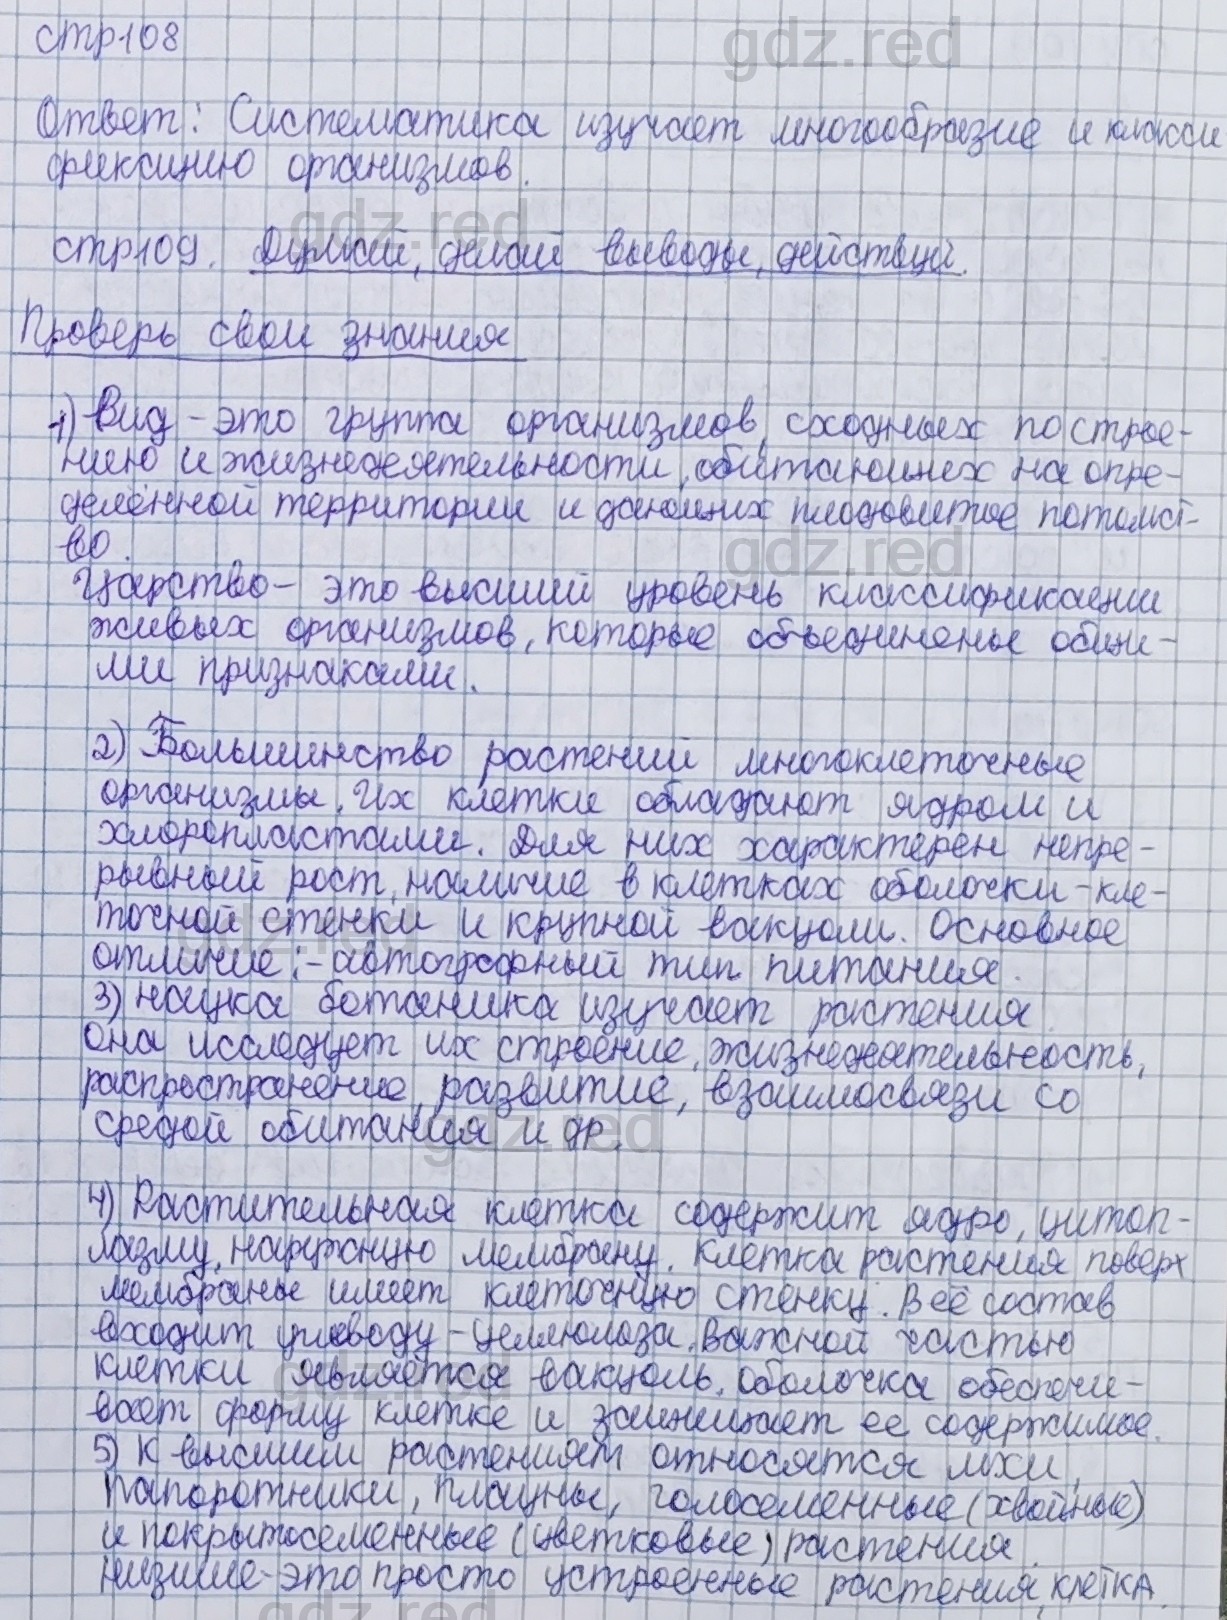 стр108
Ответ: Систематика изучает многообразие и класси
фикацию организмов.
стр109. Думай, делай выводы, действуй.
Проверь свои знания
1) Вид - это группа организмов, сходных по строе-
нию и жизнедеятельности, обитающих на опре-
делённой территории и дающих плодовитое потомст-
во.
Царство - это высший уровень классификации
живых организмов, которые объединены общи-
ми признаками.
2) Большинство растений многоклеточные
организмы. Их клетки обладают ядром и
хлоропластами. Для них характерен непре-
рывный рост, наличие в клетках оболочки - кле-
точной стенки и крупной вакуоли. Основное
отличие: - автотрофный тип питания.
3) Наука ботаника изучает растения.
Она исследует их строение, жизнедеятельность,
распространение, развитие, взаимосвязи со
средой обитания и др.
4) Растительная клетка содержит ядро, цитоп-
лазму, наружную мембрану. Клетка растения поверх
мембраны имеет клеточную стенку. В её состав
входит углевод - целлюлоза. Важной частью
клетки является вакуоль. Оболочка обеспечи-
вает форму клетке и защищает ее содержимое.
5) К высшим растениям относятся мхи,
папоротники, плауны, голосеменные (хвойные)
и покрытосеменные (цветковые) растения.
Низшие - это просто устроенные растения, клетка
gdz.red
gdz.red
gdz.red
gdz.red
gdz.red
gdz.red
gdz.red